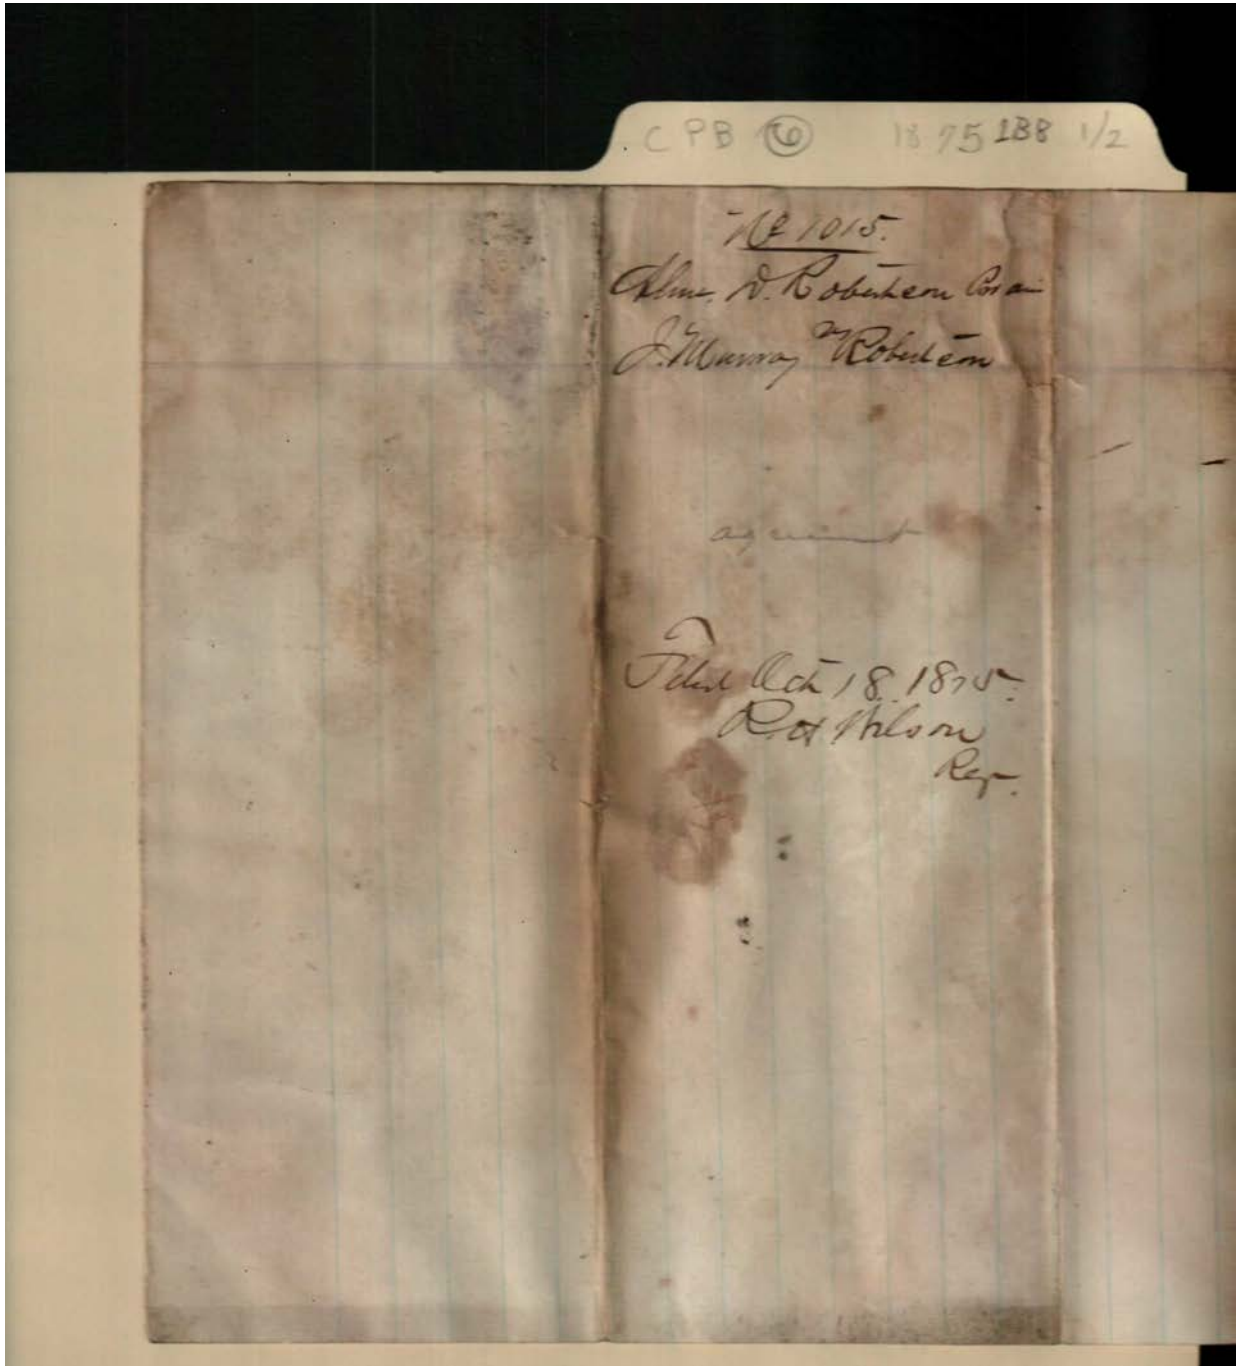 C P B 6 1875 1B8 1/2
No 1015.
D. Robertson
vs
J. Murray Robertson
against
Filed Oct 18. 1875.
R H Wilson
Reg.